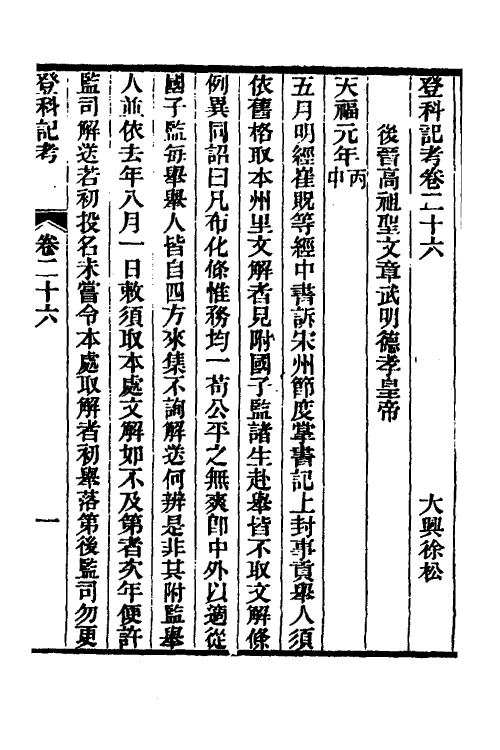 登科記考卷二十六 大興徐松
後晉高祖聖文章武明德孝皇帝
天福元年丙申
五月明經崔貺等經中書訴宋州節度掌書記上封事責舉人須
依舊格取本州里文解者見附國子監諸生赴舉皆不取文解條
例異同詔曰凡布化條惟務均一苟公平之無爽卽中外以適從
國子監每舉舉人皆自四方來集不詢解送何辨是非其附監舉
人並依去年八月一日敕須取本處文解如不及第者次年便許
監司解送若初投名未嘗令本處取解者初舉落第後監司勿更
登科記考 卷二十六 一